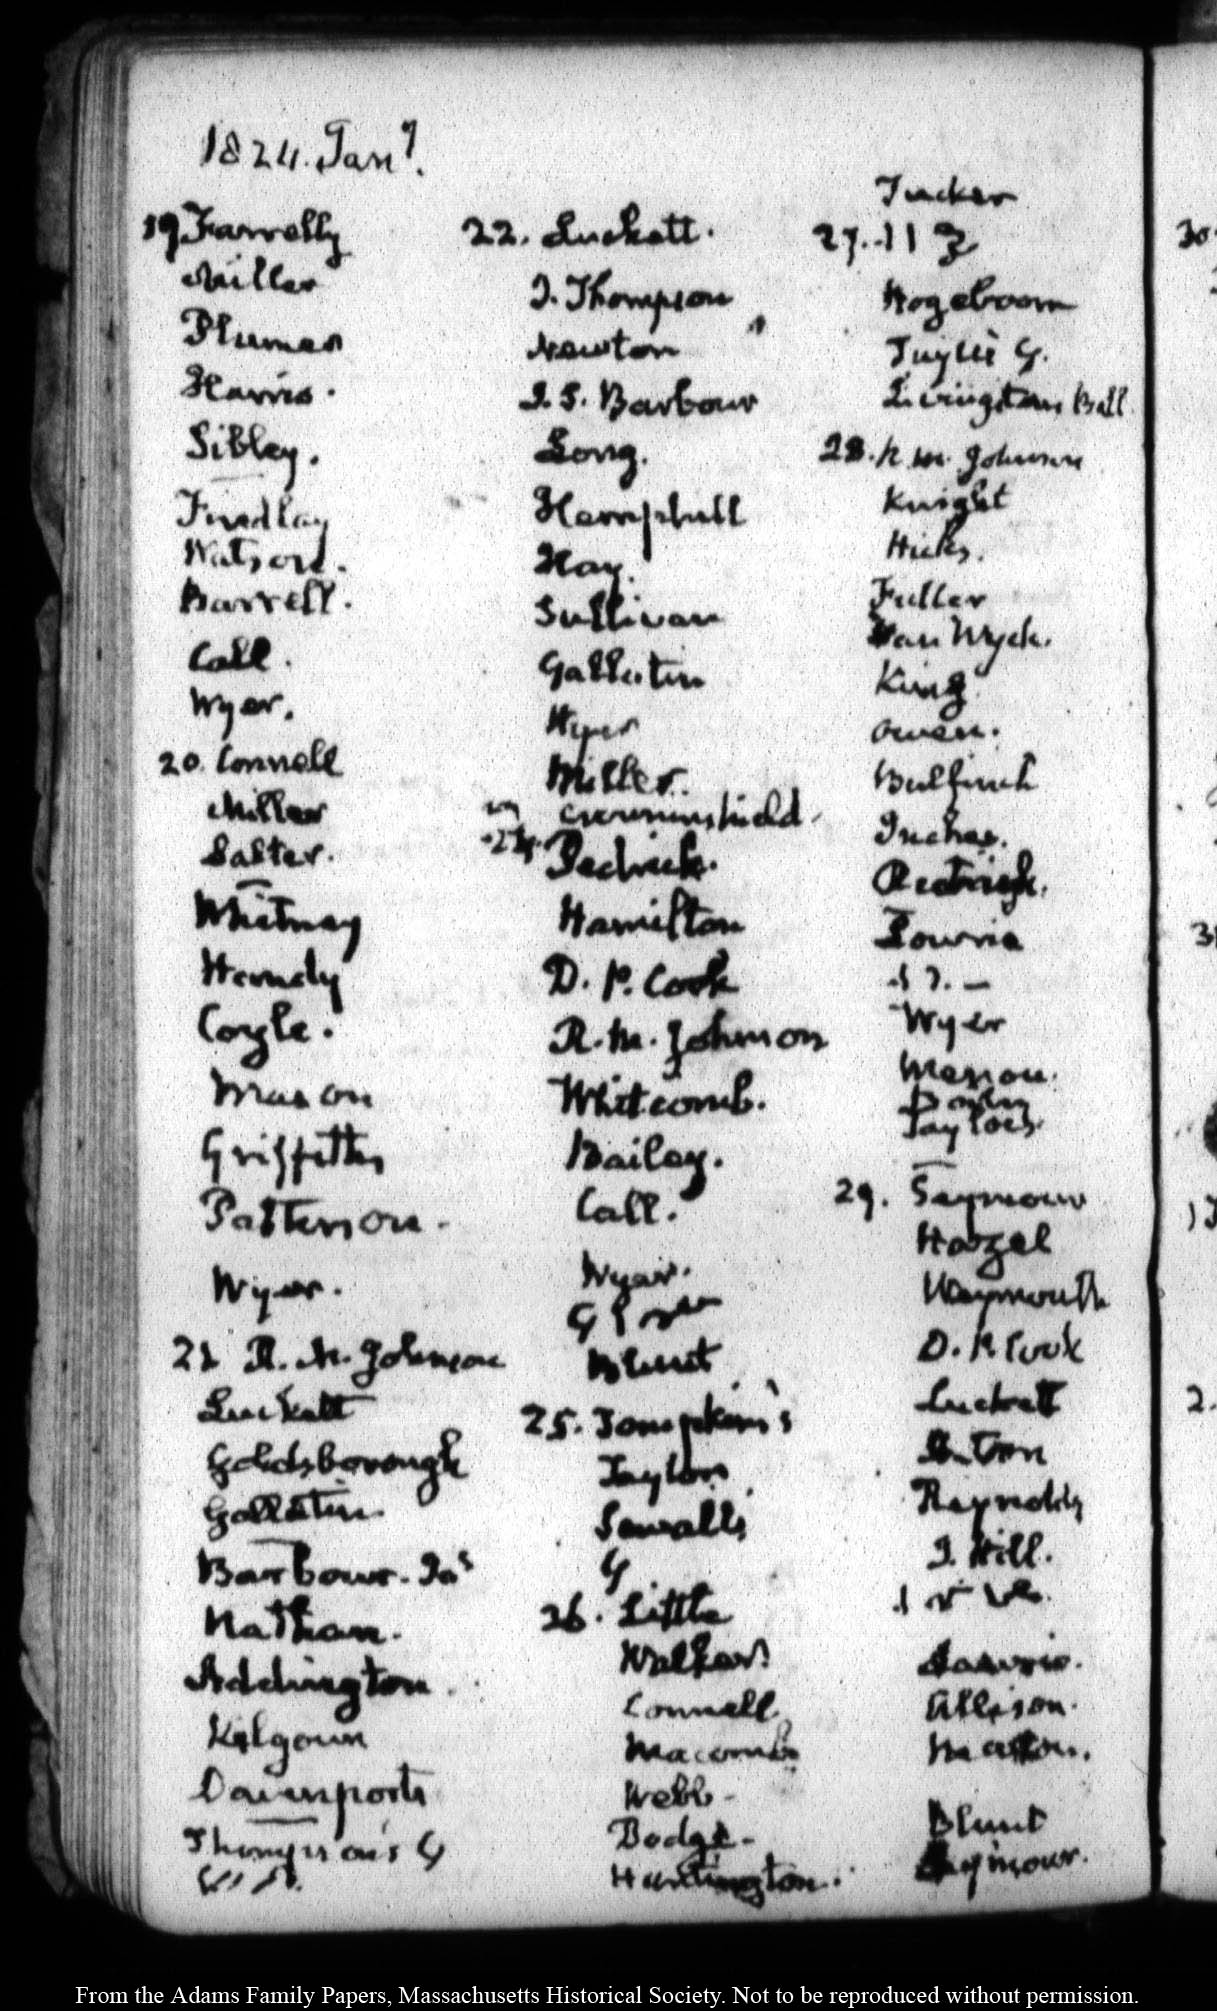 1824. Jany.
19 Farrelly
Miller
Plumer
Harris.
Sibley.
Findlay
Watson.
Barrell.
Call.
Wyer.
20. Connell
Miller
Salter.
Whitney
Handy
Coyle.
Mason
Griffith
Patterson.
Wyer.
21 R. M. Johnson
Luckett
Goldsborough
Gallatin
Barbour. Jas
Nathan.
Addington.
Kilgour
Davenports
Thompson's G
22. Luckett.
J. Thompson
Newton
J. S. Barbour
Long.
Hemphill
Hay.
Sullivan
Gallatin
Wyer
Miller.
Crowninshield.
24. Pedrick.
Hamilton
D. P. Cook
R. M. Johnson
Whitcomb.
Bailey.
Call.
Wyer.
Blunt
25. Tompkins's
Taylors
Sewalls
G
26. Little
Walker.
Connell
Macomb
Webb-
Huntington.
Tucker
27.
Hogeboom
G.
Livingston Ball
28. R. M. Johnson
Knight
Hicks.
Fuller
Van Wyck.
King
Owen.
Bulfinch
Inches.
Pedrick.
Lowrie
Wyer
Mason.
Tayloes.
29. Seymour
Hazel
Weymouth
D. P. Cook
Luckett
Reynolds
J. Hill.
Lowrie.
Allison.
Blunt
Seymour.
30
31
2.
From the Adams Family Papers, Massachusetts Historical Society. Not to be reproduced without permission.